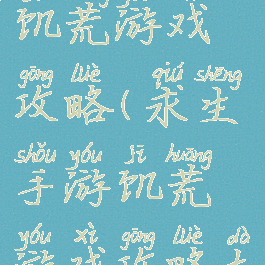 饥荒游戏
gōng lüè qiú shēng
攻略(求生
shǒu yóu jī huāng
手游饥荒
yóu xì gōng lüè dà
游戏攻略大